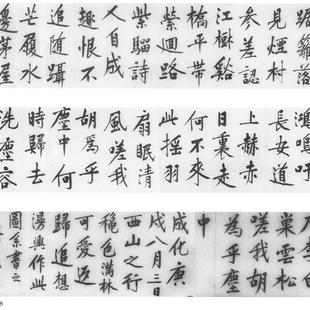 見煙村
參差認
江樹谿
橋平帶
縈迴路
紫騮詩
人自成
趣恨不
追隨躡
芒履水
邊茅屋
鴻鳴吁
長安道
上赫赤
日裏走
何不來
此搖羽
扇眠清
風嗟我
胡爲乎
塵中何
時歸去
洗塵容
巢雲松
嗟我胡
為乎塵
中
成化庚
戌八月三日
西山之行
穐色滿林
可愛返
歸追想
漫興作此
圖系書之